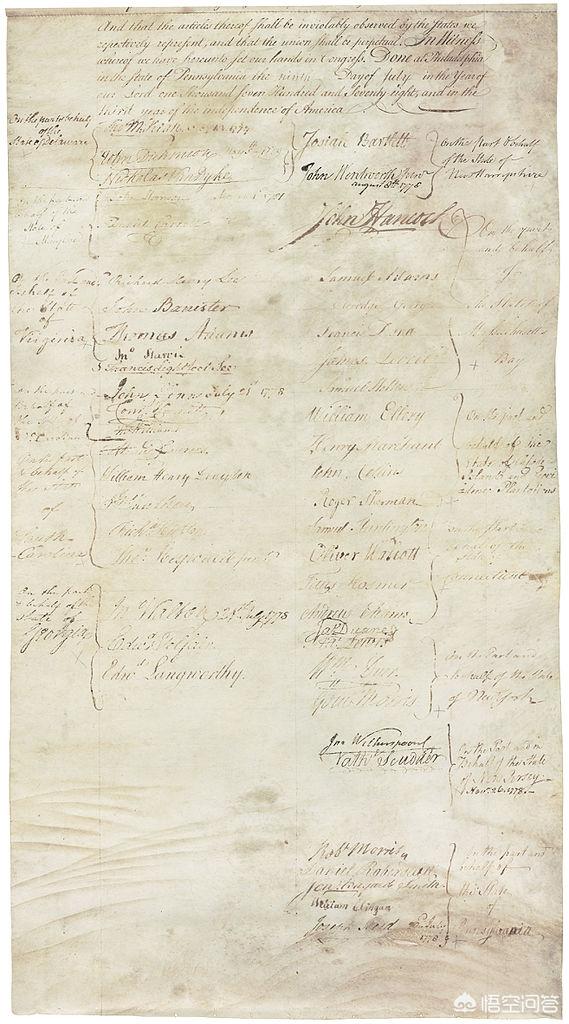 And that the articles thereof shall be inviolably observed by the States we
respectively represent, and that the union shall be perpetual. In Witness
whereof we have hereunto set our hands in Congress. Done at Philadelphia
in the state of Pennsylvania the ninth Day of July in the Year of
our Lord one thousand seven Hundred and Seventy eight, and in the
third year of the independence of America
On the part & behalf
of the
State of Delaware
Tho M:Kean
John Dickinson
Nicholas Van Dyke
Daniel Carroll
Richard Henry Lee
John Banister
Thomas Adams
Jno Harvie
Francis Lightfoot Lee
State
of
Virginia
John Penn July 21st 1778
Corns Harnett
Jno Williams
Henry Laurens
William Henry Drayton
Richd Hutson
Thos Heyward junr
of
South
Carolina
On the part
& behalf of the
State of
Georgia
Jno Walton 24th July 1778
Edwd Telfair
Edwd Langworthy.
Josiah Bartlett
John Wentworth Junr
august 8th 1778
On the part & behalf
of the State of
New Hampshire
John Hancock
Samuel Adams
Elbridge Gerry
Francis Dana
James Lovell
Samuel Holten
On the part
and behalf
of
the State of
Massachusetts
Bay
William Ellery
Henry Marchant
John Collins
On the part and
behalf of the
State of Rhode
Island and Provi
dence Plantations
Roger Sherman
Samuel Huntington
Oliver Wolcott
Titus Hosmer
Andrew Adams
on the part &
behalf of the
State of
Connecticut
Jas Duane
Fra: Lewis
Wm Duer
Gouv Morris
On the Part and
behalf of the State
of New York
Jno Witherspoon
Nathl Scudder
On the Part and in
Behalf of the State
of New Jersey
Novr 26. 1778.
Robt Morris
Daniel Roberdeau
Jon: Bayard Smith
William Clingan
Joseph Reed
July
1778
On the part and
behalf of
the State
of
Pennsylvania
悟空问答